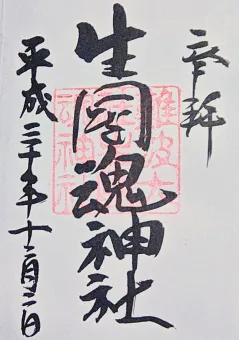 奉拝
難波大
生国魂神社
魂神社
平成三十年十二月二日